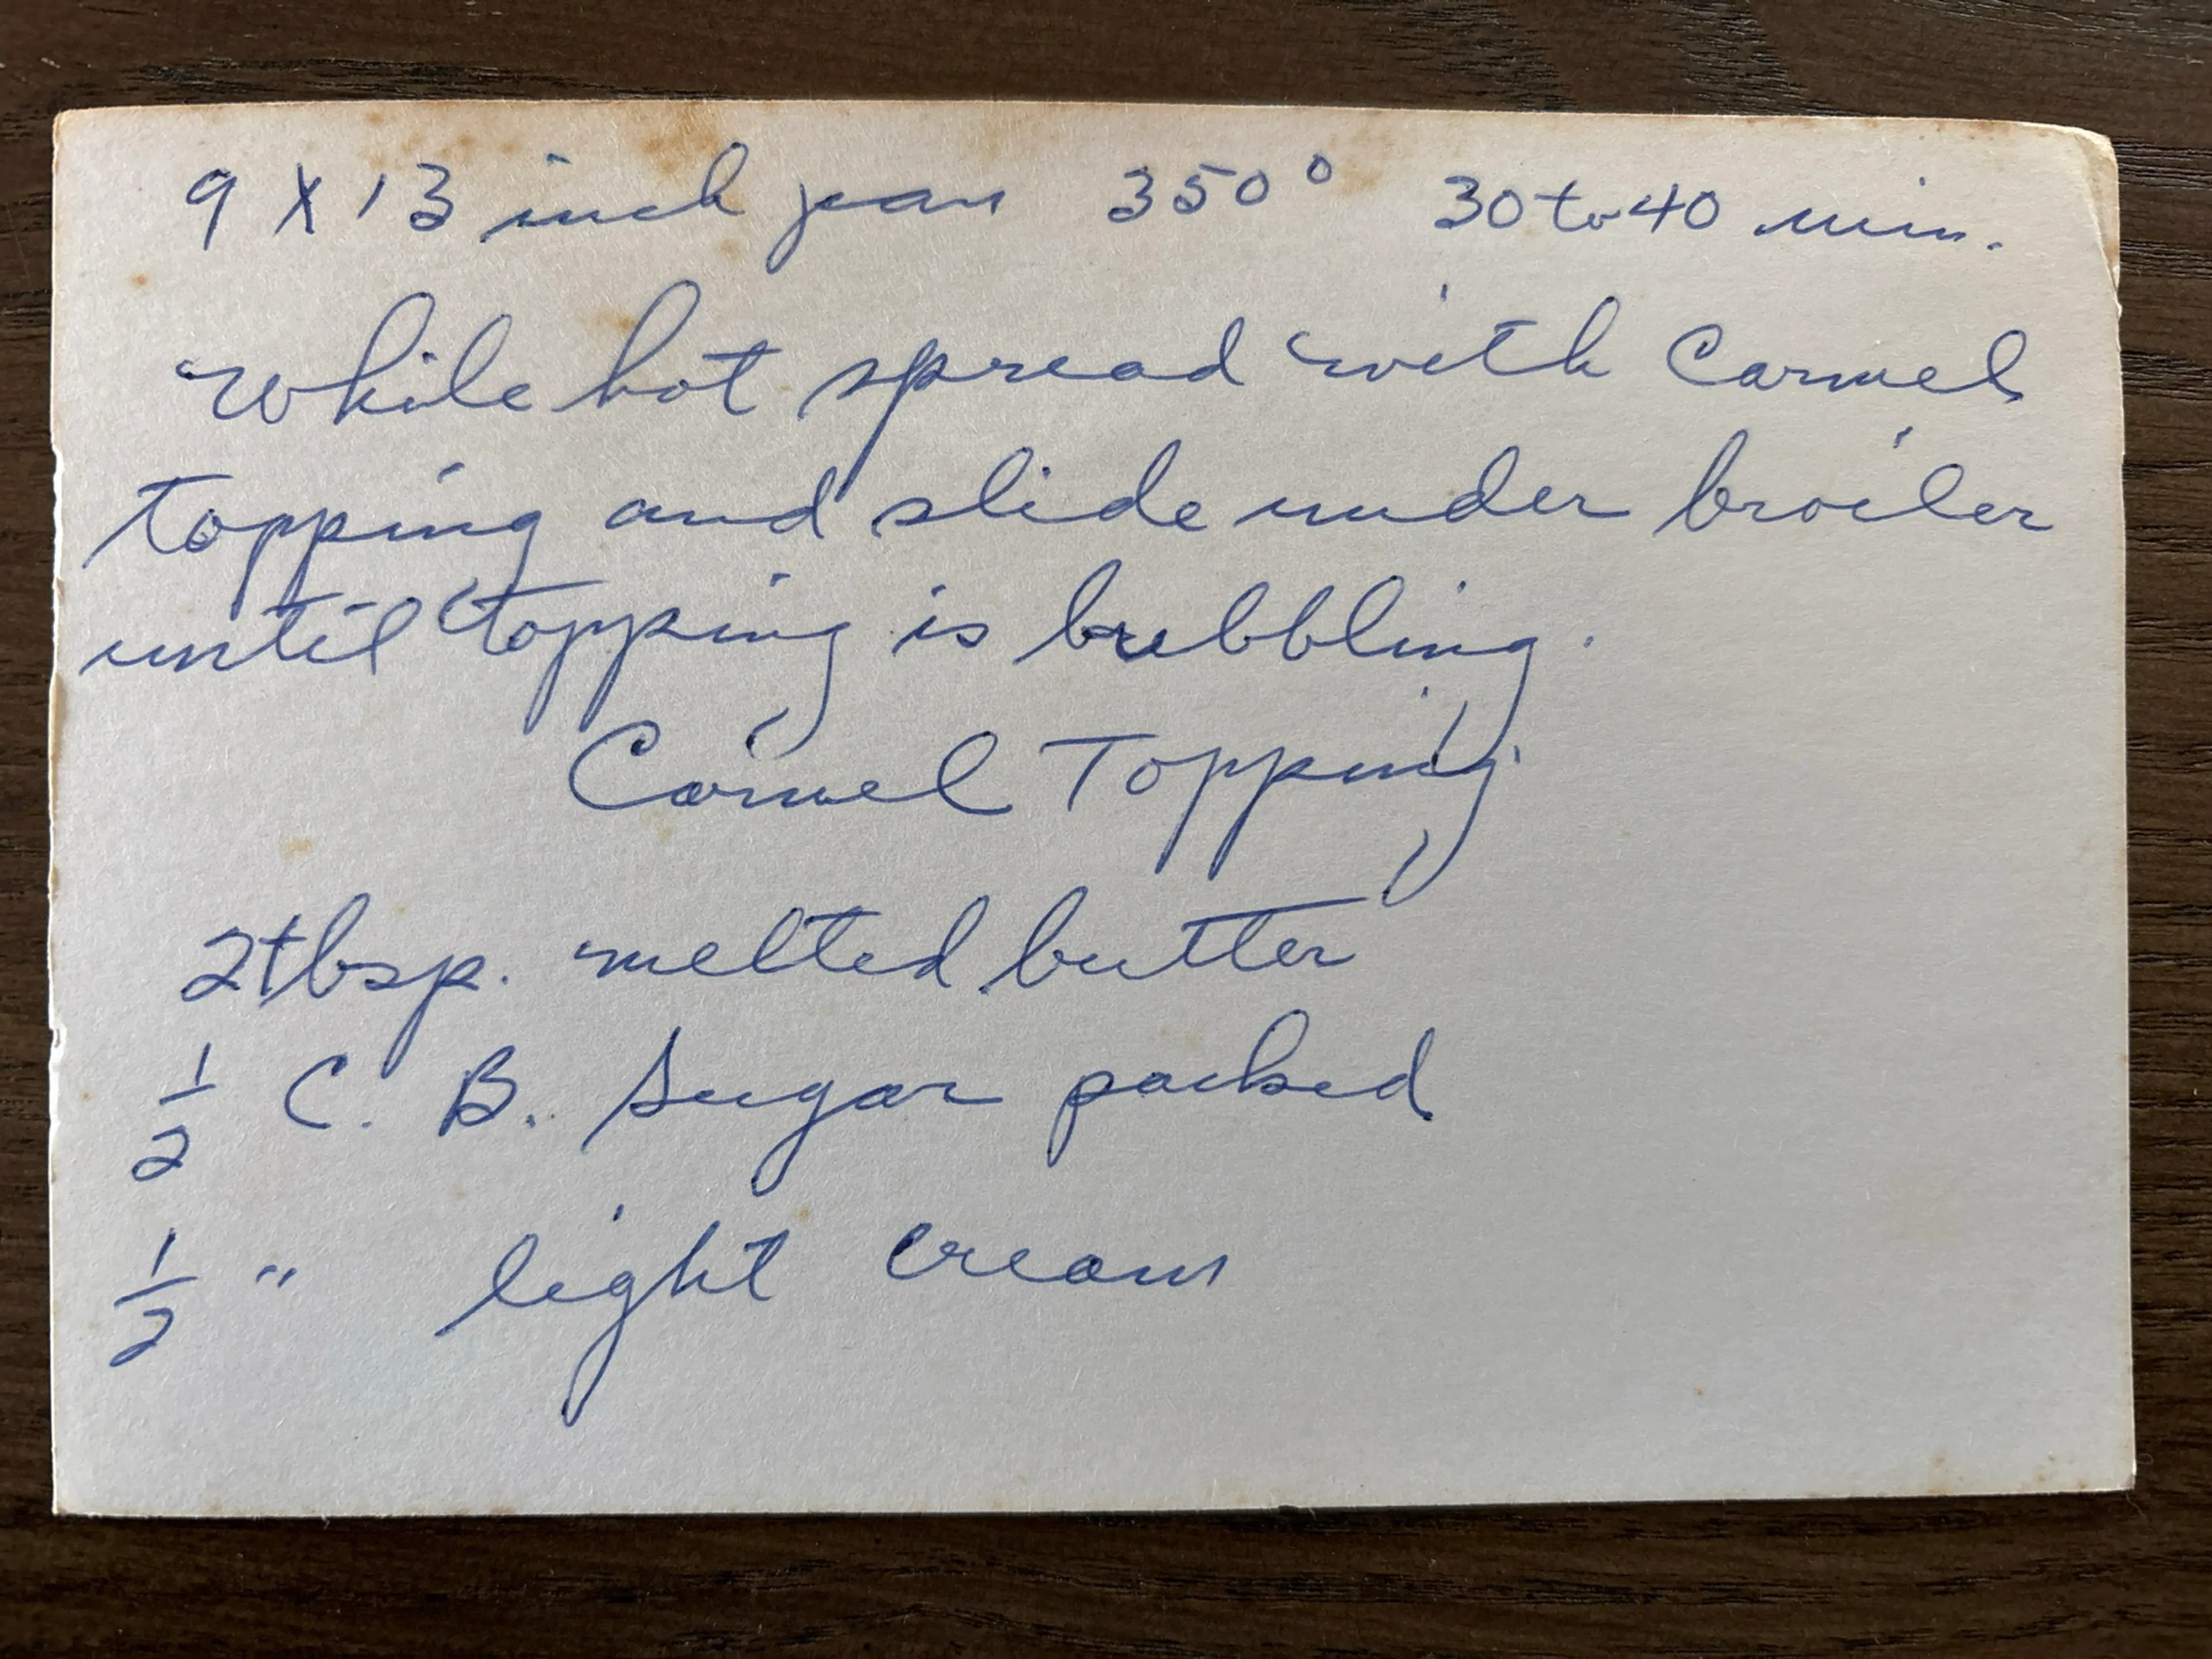 9 X 13 inch pan 350° 30 to 40 min.
While hot spread with Carmel
topping and slide under broiler
until topping is bubbling.
Carmel Topping
2 tbsp. melted butter
1/2 C. B. Sugar packed
1/2 " light cream